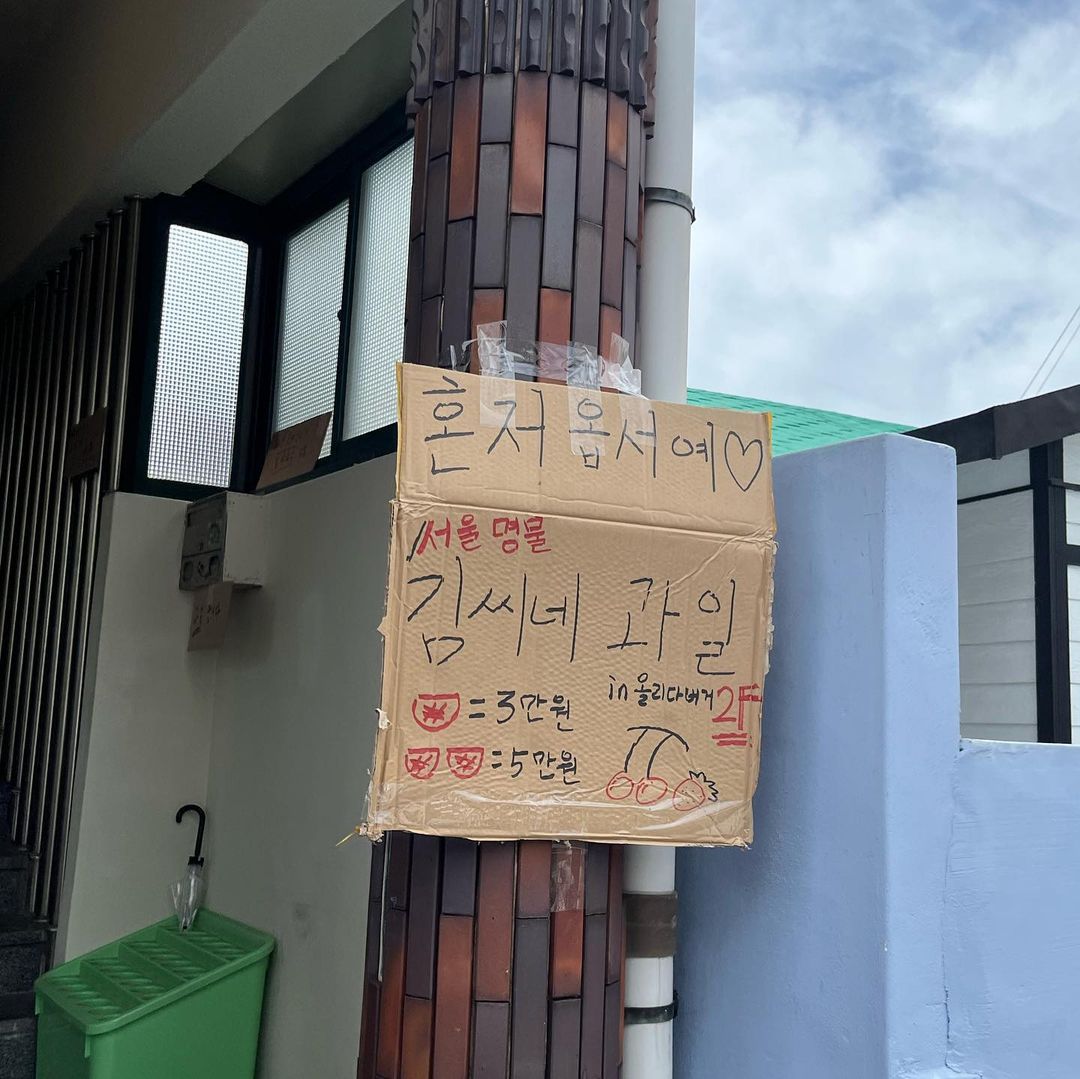 혼저옵서예♡
서울 명물
김씨네 과일
in 올리다버거 2F
= 3만원
= 5만원